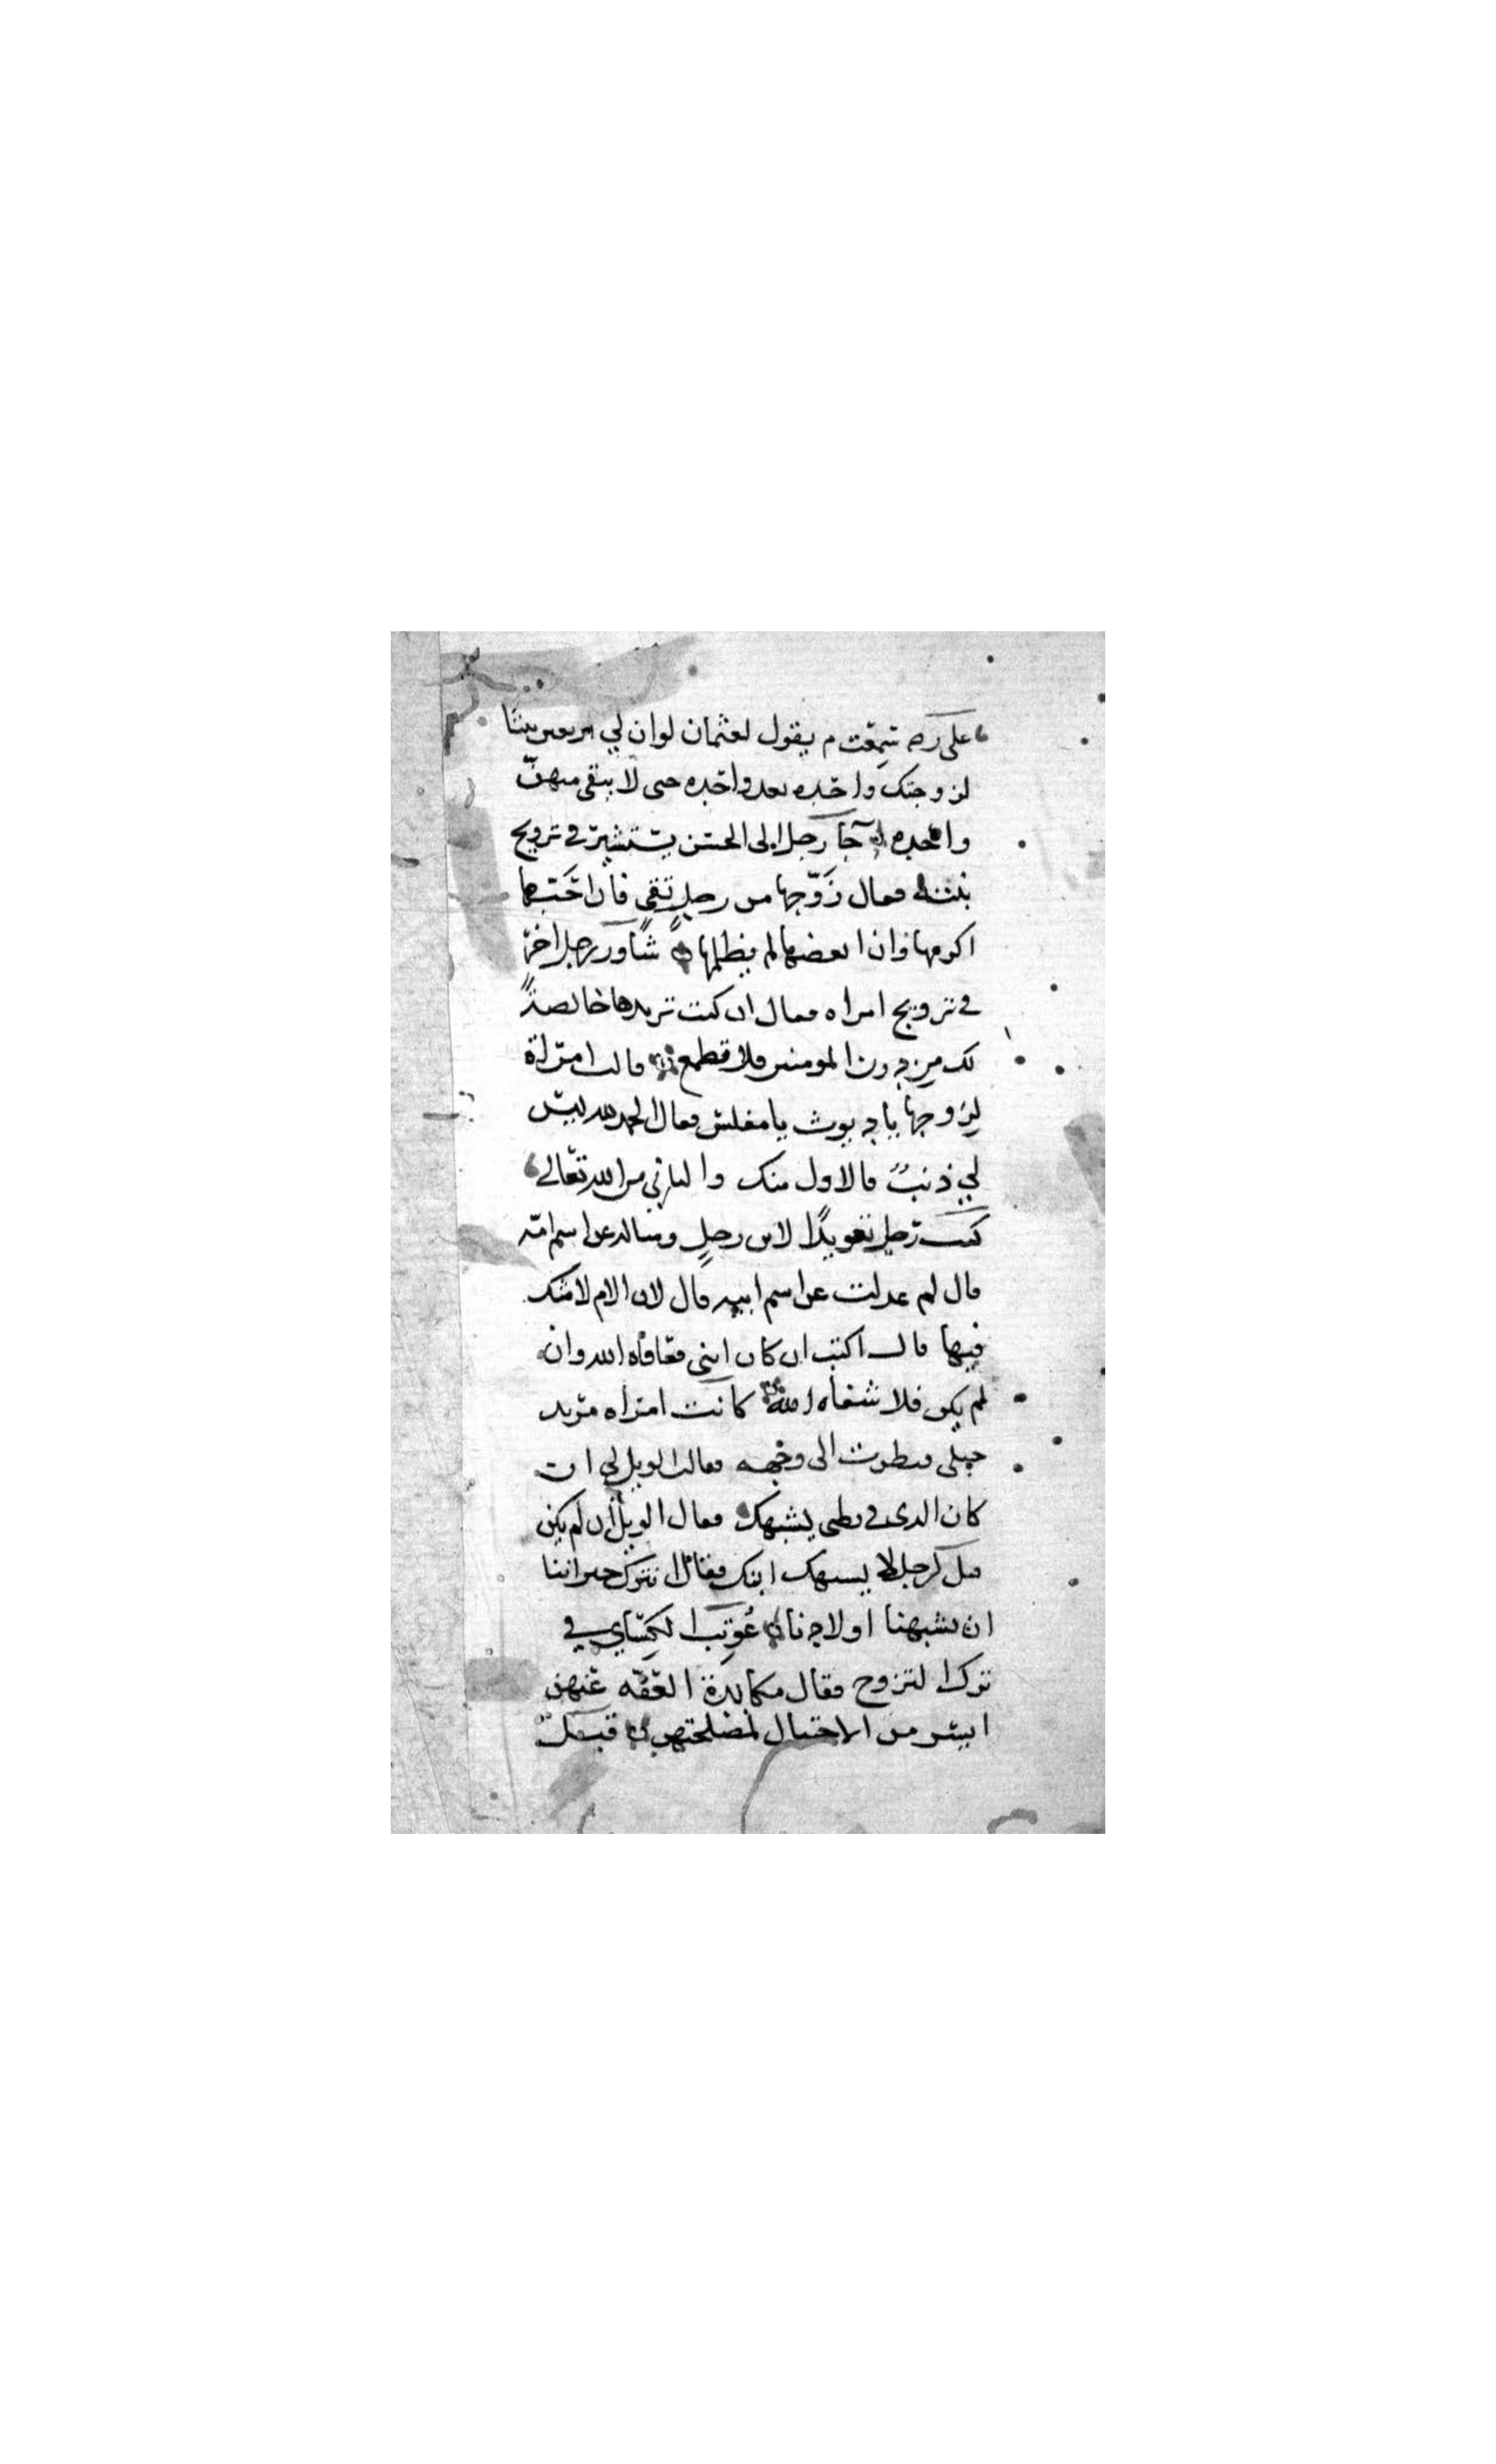 على رضه سمعت م يقول لعثمان لو ان لي اربعين بنتا
لزوجتك واحده بعد واحده حتى لا يبقى منهنّ
واحده جآ رجل الى الحسن يستشيره في تزويج
بنته فقال زَوّجها من رجلٍ تقيٍ فان احَبّها
اكرمها وان ابغضها لم يظلمها شاور رجل اخر
في تزويج امراه فقال ان كنت تريدها خالصةً
لك من دون المومنين فلا تطمع قالت امراة
لزوجها يا ديوث يا مفلس فقال الحمد لله ليس
لي ذنبٌ فالاول منك والثاني من الله تعالى
كتب رجل تعويذًا لابن رجلٍ وساله عن اسم امّه
قال لم عدلت عن اسم ابيه قال لان الام لا شك
فيها قال اكتب ان كان ابني فعافاه الله وان
لم يكن فلا شفاه الله كانت امراه مزبد
حبلى فنظرت الى وجهه فقالت الويل لي ان
كان الذي في بطني يشبهك فقال الويل ان لم يكن
قيل لرجل لا يشبهك ابنك فقال انترك جيراننا
ان يشبهنا اولادنا عُوتِبَ الكسَاي في
ترك التزوج فقال مكابدة العفّه عنهن
ايسر من الاحتيال لمصلحتهن